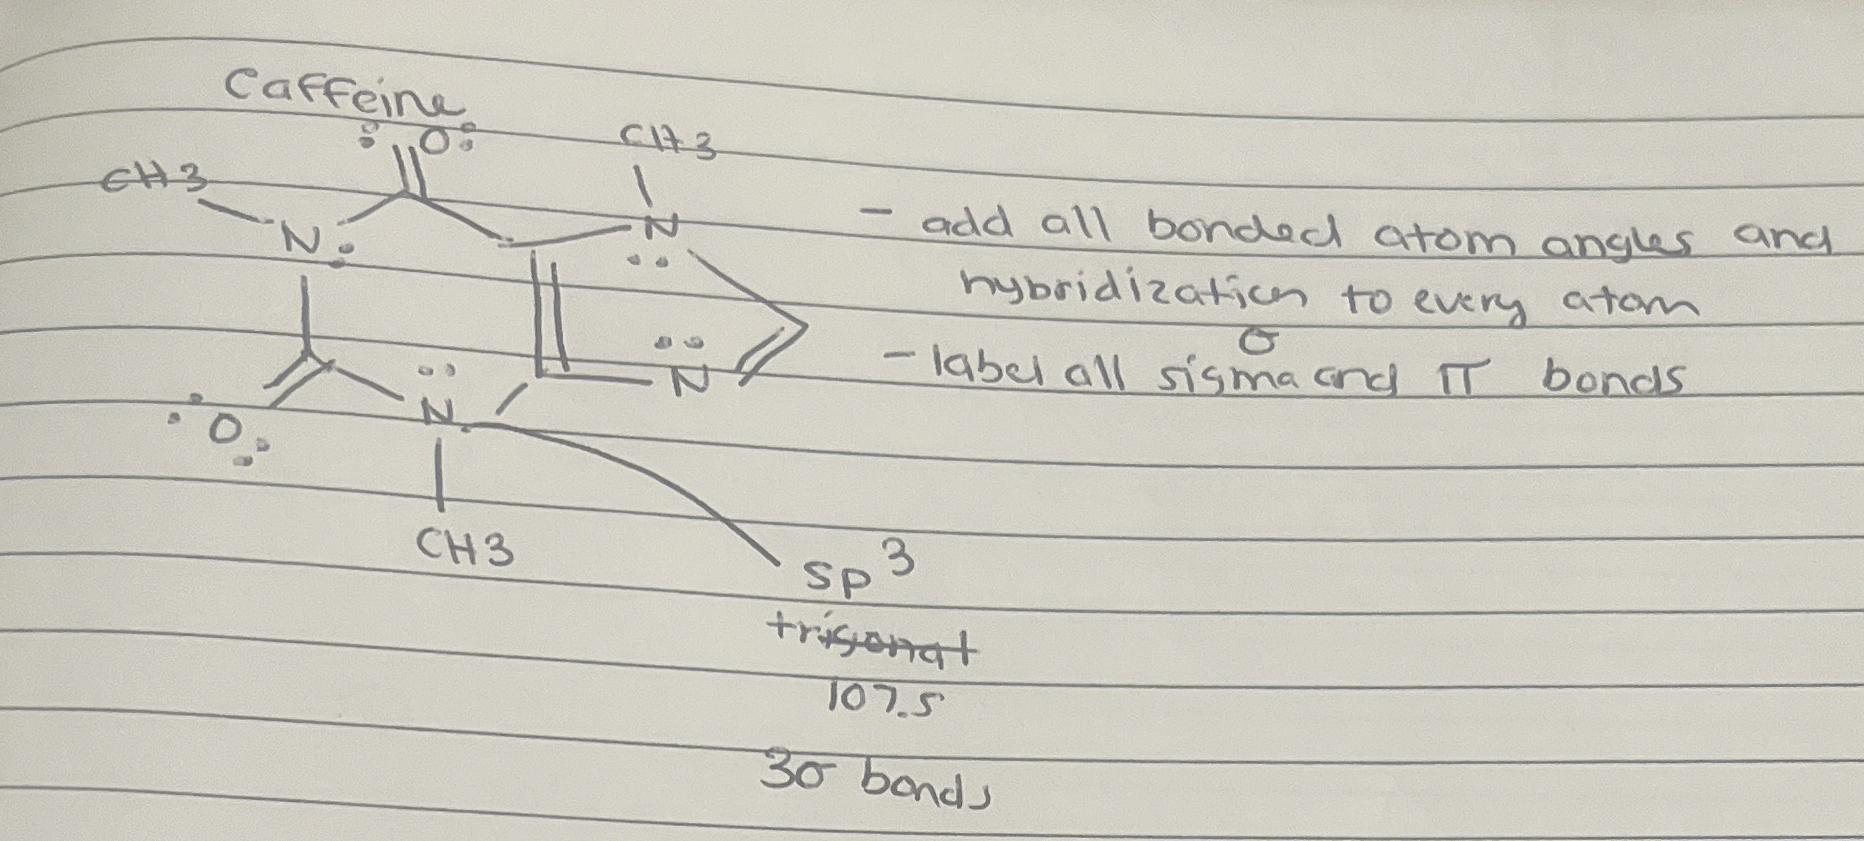 Caffeine
:O:
CH3
CH3
N:
N
..
- add all bonded atom angles and
hybridization to every atom
σ
- label all sigma and π bonds
..
N
..
N
:O:
CH3
sp³
trigonal
107.5
3σ bonds